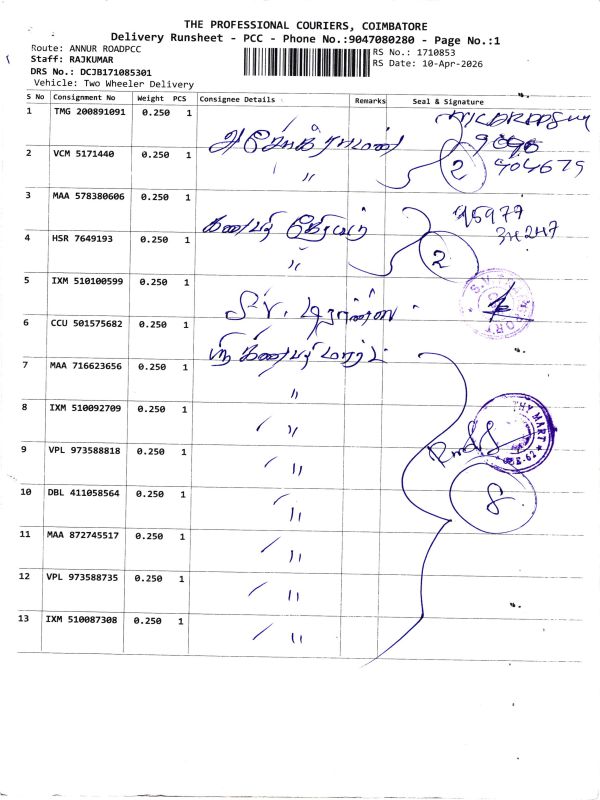 THE PROFESSIONAL COURIERS, COIMBATORE
Delivery Runsheet - PCC - Phone No.:9047080280 - Page No.:1
Route: ANNUR ROADPCC
Staff: RAJKUMAR
DRS No.: DCJB171085301
Vehicle: Two Wheeler Delivery
RS No.: 1710853
RS Date: 10-Apr-2026
S No Consignment No Weight PCS Consignee Details Remarks Seal & Signature
1 TMG 200891091 0.250 1
2 VCM 5171440 0.250 1 " 2 904679
3 MAA 578380606 0.250 1 கணபதி 95977
34247
4 HSR 7649193 0.250 1 " 2
5 IXM 510100599 0.250 1 S.V.
6 CCU 501575682 0.250 1 ஸ்ரீ கணபதி மார்ட்
7 MAA 716623656 0.250 1 "
8 IXM 510092709 0.250 1 " THY MART
9 VPL 973588818 0.250 1 "
10 DBL 411058564 0.250 1 " 8
11 MAA 872745517 0.250 1 "
12 VPL 973588735 0.250 1 "
13 IXM 510087308 0.250 1 "